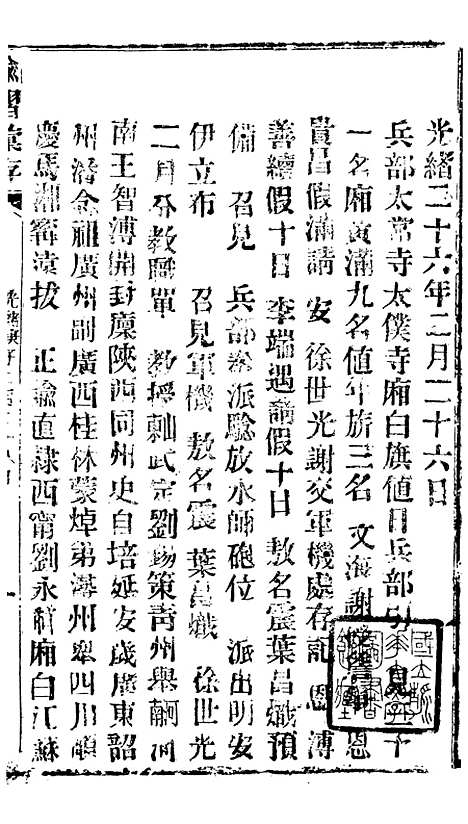 光緒二十六年二月二十六日
兵部太常寺太僕寺廂白旗値日兵部引 見五十
一名廂黃滿九名値年旂三名 文海謝 恩
貴昌假滿請 安 徐世光謝交軍機處存記 恩 溥
善續假十日 李端遇請假十日 敖名震葉昌熾預
備 召見 兵部奏派驗放水師砲位 派出明安
伊立布 召見軍機 敖名震 葉昌熾 徐世光
二月分教職單 敎授 武定劉錫策靑州舉 河
南王智溥開封廩陝西同州史自培延安歲廣東韶
州潘念祖廣州副廣西桂林蒙焯第潯州舉四川順
慶馬湘 遠拔 正諭直隸西甯劉永 廂白江蘇
諭摺彙存